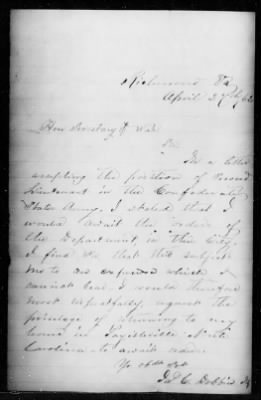 Richmond Va
April 27th/62
Hon Secretary of War
Sir
In a letter
accepting the position of Second
Lieutenant in the Confederate
States Army, I stated that I
would await the orders of
the Department, in this City.
I find Sir that this subject
me to an expense which I
cannot bear. I would therefore
most respectfully, request the
privilege of returning to my
home in Fayetteville North
Carolina to await orders.
Yr obt Svt
Jas C. Dobbin Jr